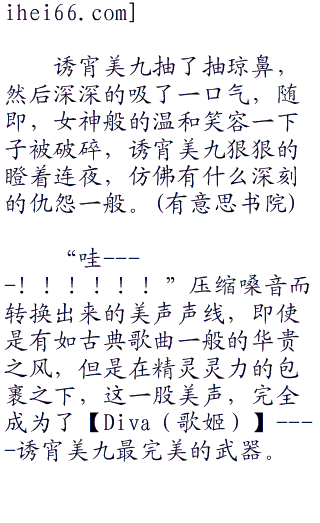 ihei66.com]
诱宵美九抽了抽琼鼻，
然后深深的吸了一口气，随
即，女神般的温和笑容一下
子被破碎，诱宵美九狠狠的
瞪着连夜，仿佛有什么深刻
的仇怨一般。(有意思书院)
“哇---
-！！！！！！”压缩嗓音而
转换出来的美声声线，即使
是有如古典歌曲一般的华贵
之风，但是在精灵灵力的包
裹之下，这一股美声，完全
成为了【Diva（歌姬）】---
-诱宵美九最完美的武器。